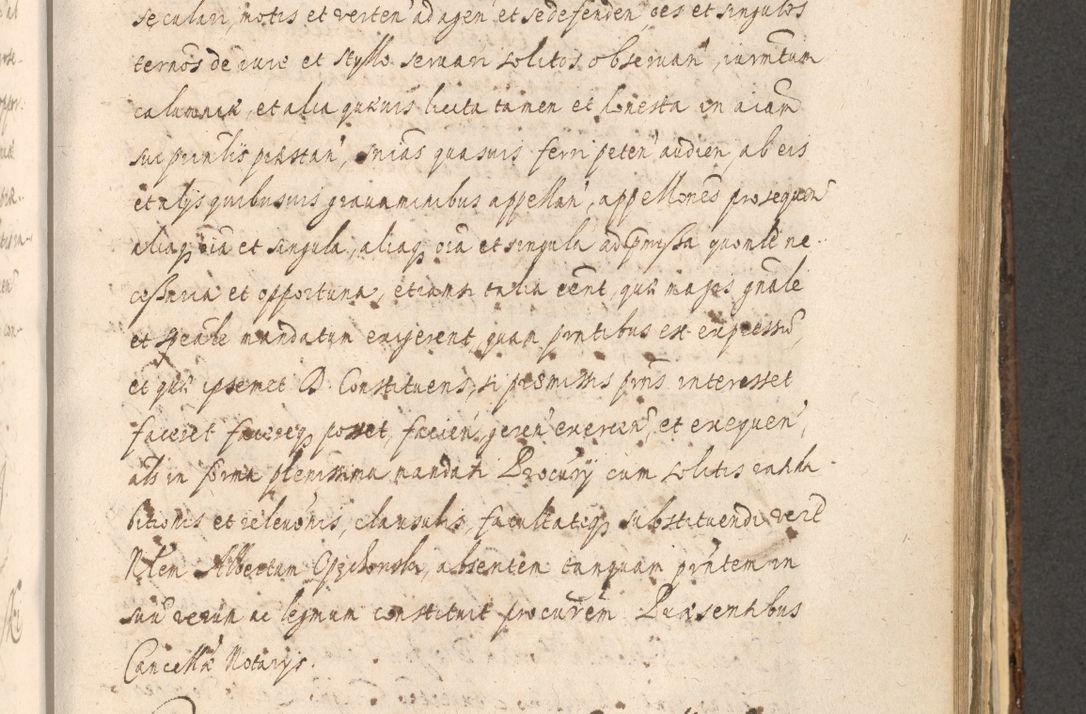 seculari, motis et verten' ad agen' et se defenden', oes et singulos
ternos de iure et styllo servari solitos observan', iurmtum
calumniæ, et alia quævis licita tamen et honesta in aiam
sui prinlis præstan', snias quasvis ferri peten' audien' ab eis
et alijs quibusvis gravaminibus appellan', appellones prosequen'
aliaq oia et singula, aliaq oia et singula ad præmissa quomlt ne-
cessaria et opportuna, etiamsi talia eent, quæ magis gnale
et speale mandatum exigerent, quam pntibus est expressu,
et quæ ipsemet D. Constituens, si præmissis pns interesset
faceret facereq posset, facien', geren' exercen', et exequen',
als in forma plenissima mandati Procurÿ cum solitis rathi-
bitionis et relevonis, clausulis, facultateq substituendi vert
Nlem Albertum Opechonsk, absentem tanquam pntem in
suu verum ac legmum constituit procurem Præsentibus
Cancellæ Notarÿs.